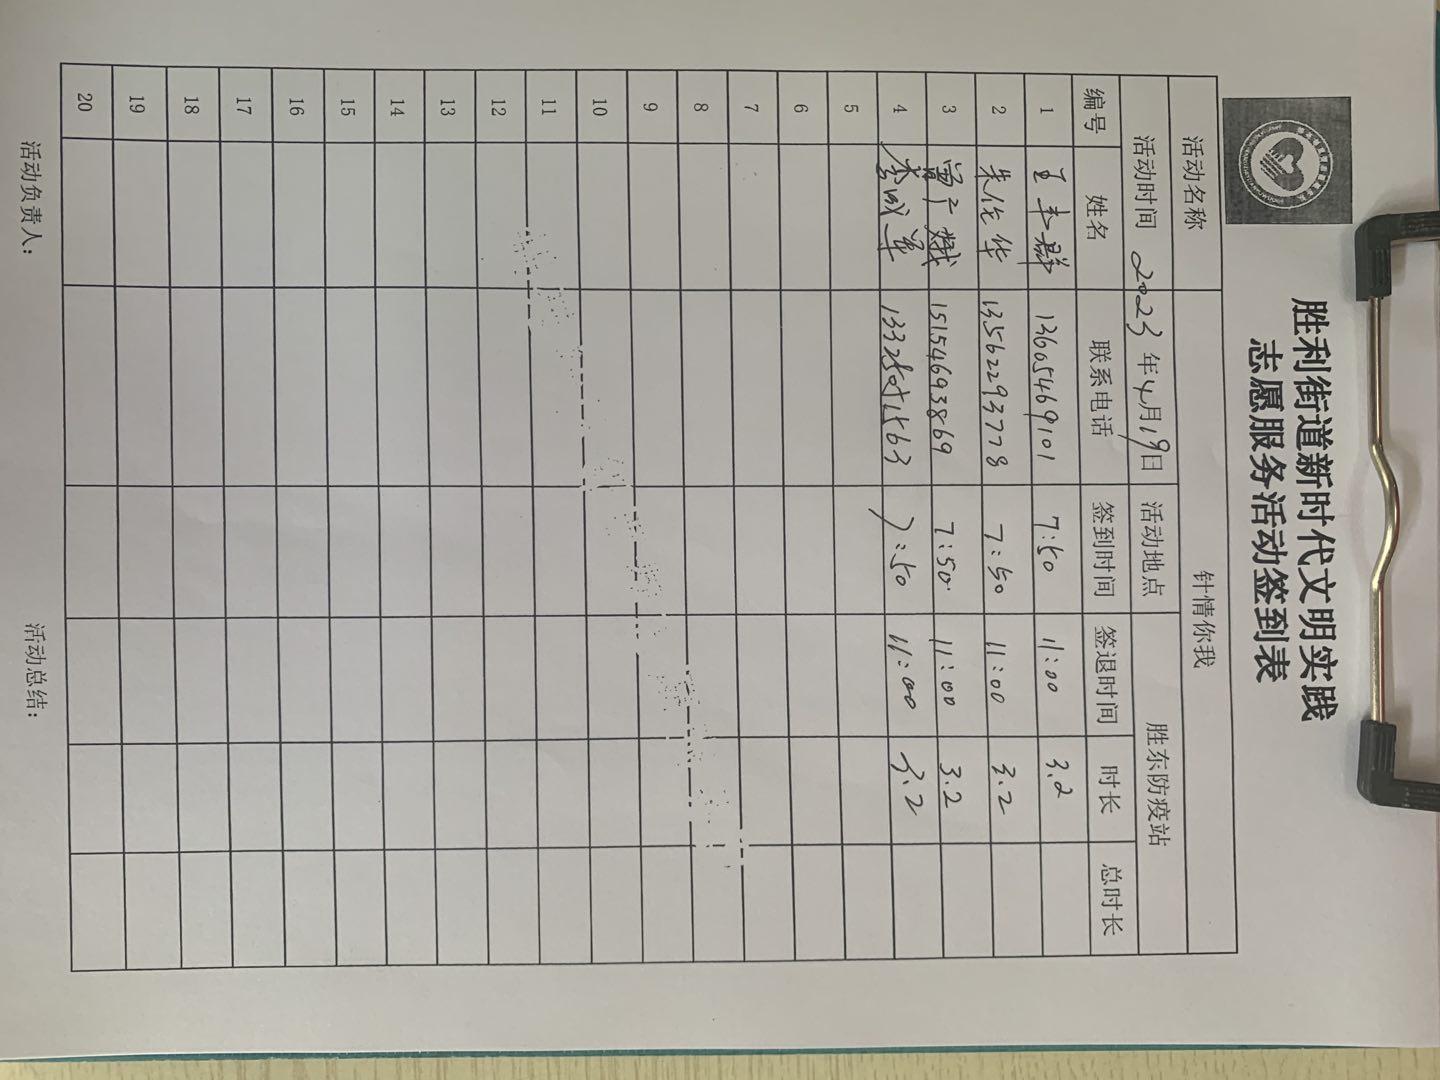 胜利街道新时代文明实践
志愿服务活动签到表
活动名称 针情你我
活动时间 2023年4月19日 活动地点 胜东防疫站
编号 姓名 联系电话 签到时间 签退时间 时长 总时长
1 王丰群 13605469101 7:50 11:00 3.2
2 朱伦华 13562293778 7:50 11:00 3.2
3 15154693869 7:50 11:00 3.2
4 李成军 7:50 11:00 3.2
5
6
7
8
9
10
11
12
13
14
15
16
17
18
19
20
活动负责人: 活动总结: